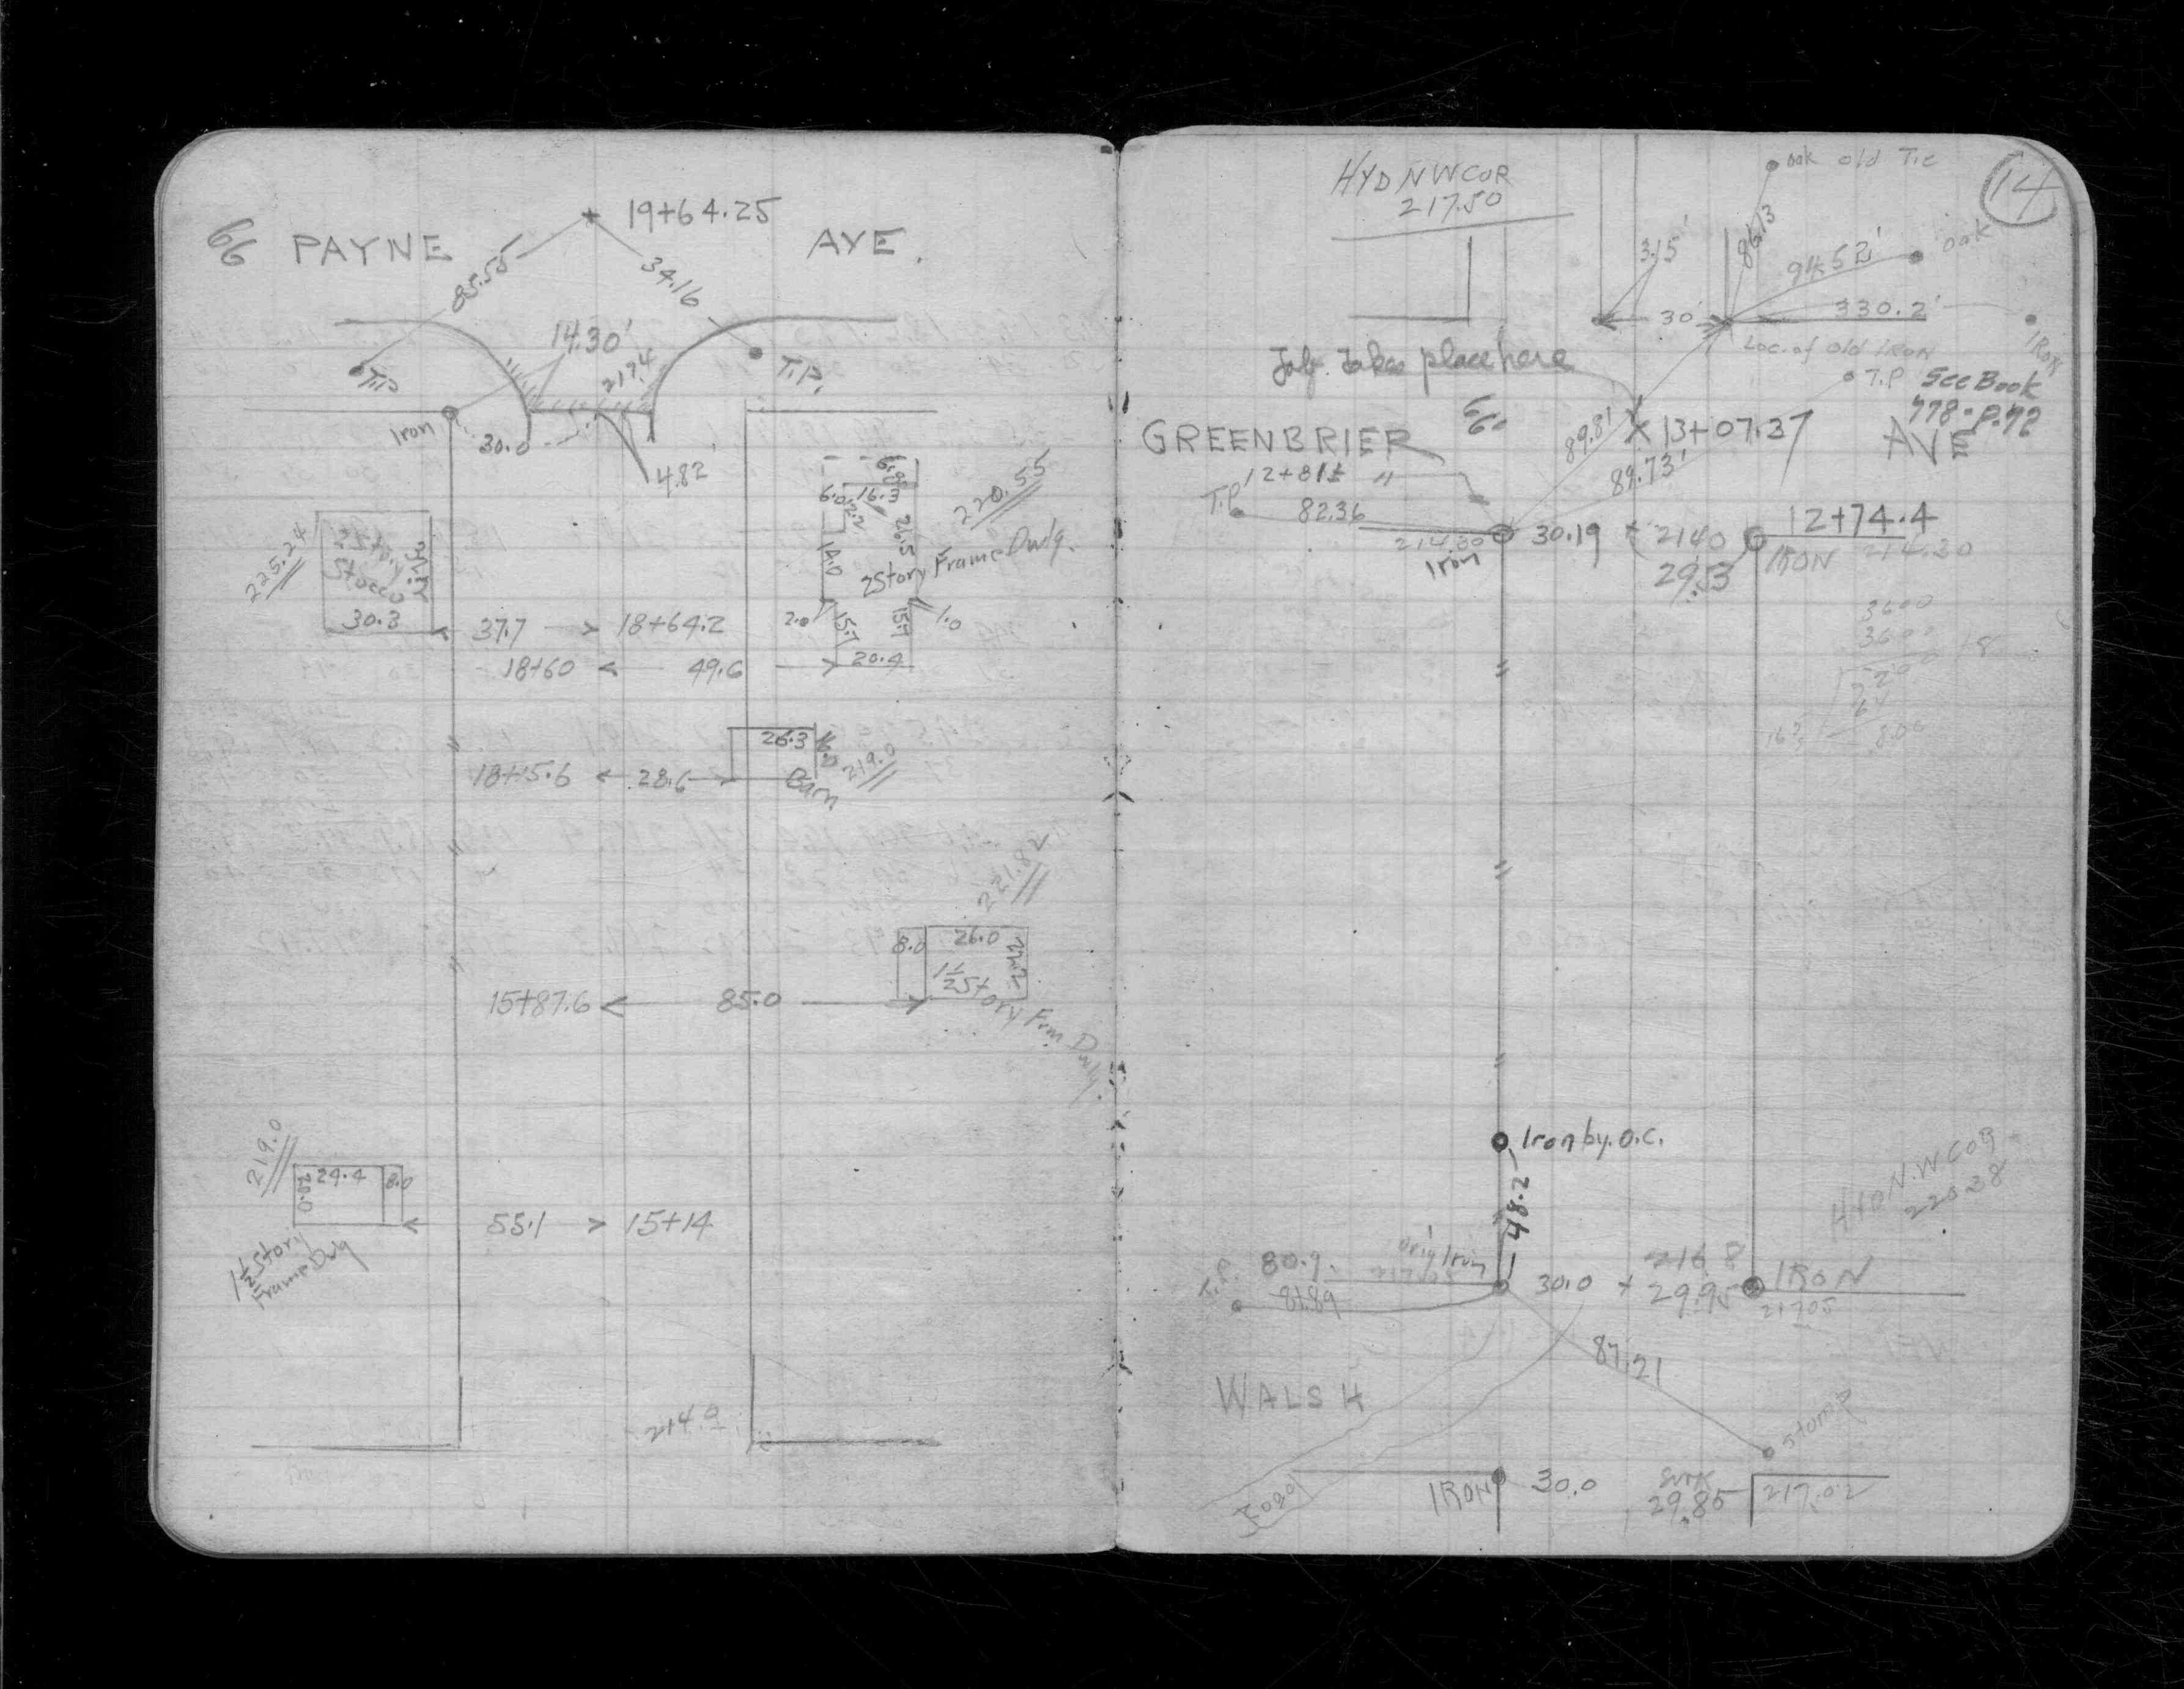 66 PAYNE AVE.
19+64.25
85.55
34.16
14.30'
217.4
T.P.
T.P.
Iron
30.0
4.82
6.0
16.3
26.5
14.0
220.55
2 Story Frame Dwlg.
2.0
15.7
15.7
1.0
20.4
225.24
2 Story
Stucco
30.3
37.7 18+64.2
18+60 49.6
26.3
219.0
Barn
18+15.6 28.6
221.82
8.0 26.0
1½ Story Frm Dwlg.
15+87.6 85.0
219.0
24.4 8.0
20.0
55.1 15+14
1½ Story
Frame Dwlg
214.9
14
HYD NW COR
217.50
oak old Tie
86.13
3.15'
94.52'
oak
30'
330.2'
Iron
Loc. of old IRON
Job. Takes place here
T.P. See Book
778-P.72
GREENBRIER 66' AVE
89.81'
X 13+07.37
89.73'
12+81± "
T.P.
82.36
30.19 + 2140
29.3
12+74.4
Iron
IRON 214.30
3600
3600
Iron by. O.C.
48.2
HYD N.W COR
220.38
T.P. 80.9
orig Iron
81.89
30.0 + 29.95
216 8
IRON
217.05
87.21
WALSH
stump
Road
IRON 30.0
29.85
217.02